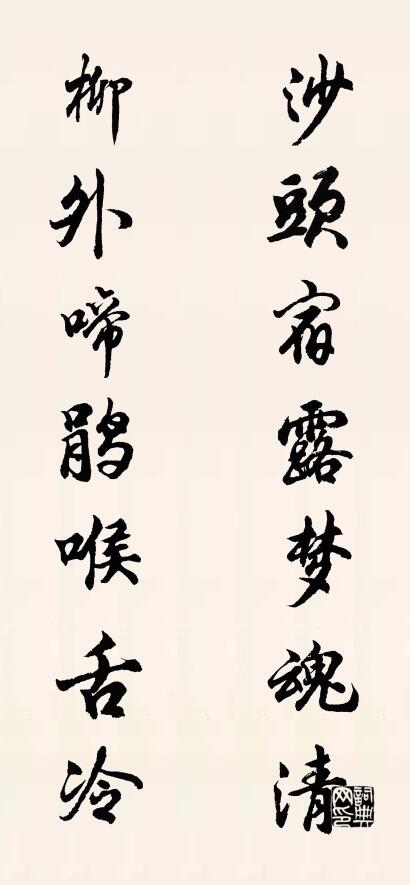 沙頭宿露梦魂清
柳外啼鹃喉舌冷
詞典网